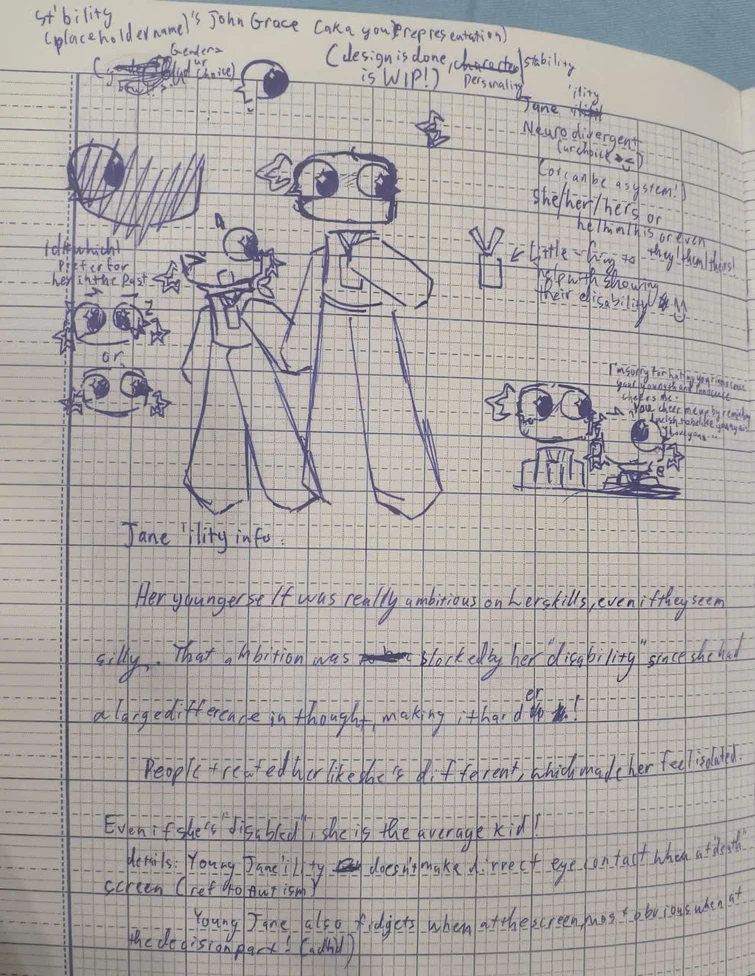 St'bility
(placeholder name)'s John Grace (aka your representation)
(design is done, stability
personality is WIP!)
Genders
ur choice)
Jane 'ility
Neurodivergent
(ur choice >_<)
(or can be a system!)
She/her/hers or
he/him/his or even
they/them/theirs!
← Little
up with showing
their disability
(old which I
prefer for
her in the past
or
I'm sorry for hating your innocence
your youngsth and innocence
cheers me.
You cheer me up by
I wish to be like young
Thank you..
Jane 'ility info:
Her youngerself was really ambitious on her skills, even if they seem
silly. That ambition was blocked by her "disability" since she had
a large difference in thought, making it harder!
People treated her like she's different, which made her feel isolated.
Even if she's "disabled", she is the average kid!
details: Young Jane'ility doesn't make dirrect eye contact when at death
screen (ref to Autism)
Young Jane also fidgets when at the screen, most obvious when at
the decision part! (adhd)